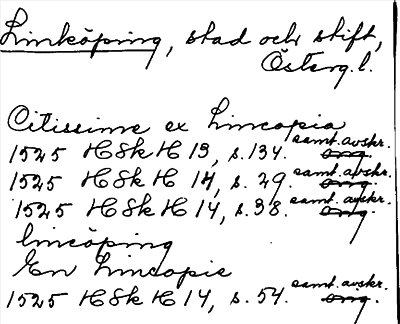 Linköping, stad och stift,
Österg.l.
Citissime ex Lincopia
1525 HSkH 13, s. 134. samt. avskr. orig.
1525 HSk H 14, s. 29. samt. avskr. orig.
1525 HSk H 14, s. 38. samt. avskr. orig.
lincöping
En Lincopie
1525 HSk H 14, s. 54. samt. avskr. orig.